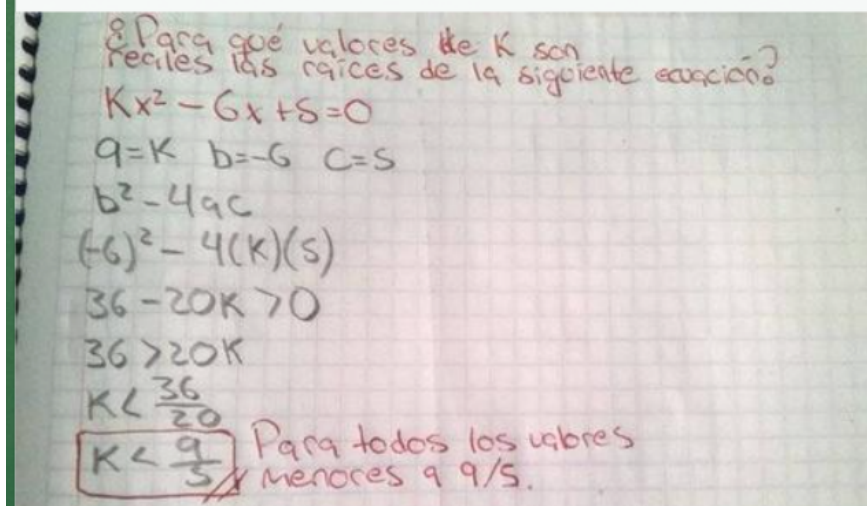 ¿Para qué valores de K son
reales las raíces de la siguiente ecuación?
Kx² - 6x + 5 = 0
a=K b=-6 c=5
b² - 4ac
(-6)² - 4(K)(5)
36 - 20K > 0
36 > 20K
K < 36/20
K < 9/5 Para todos los valores
menores a 9/5.